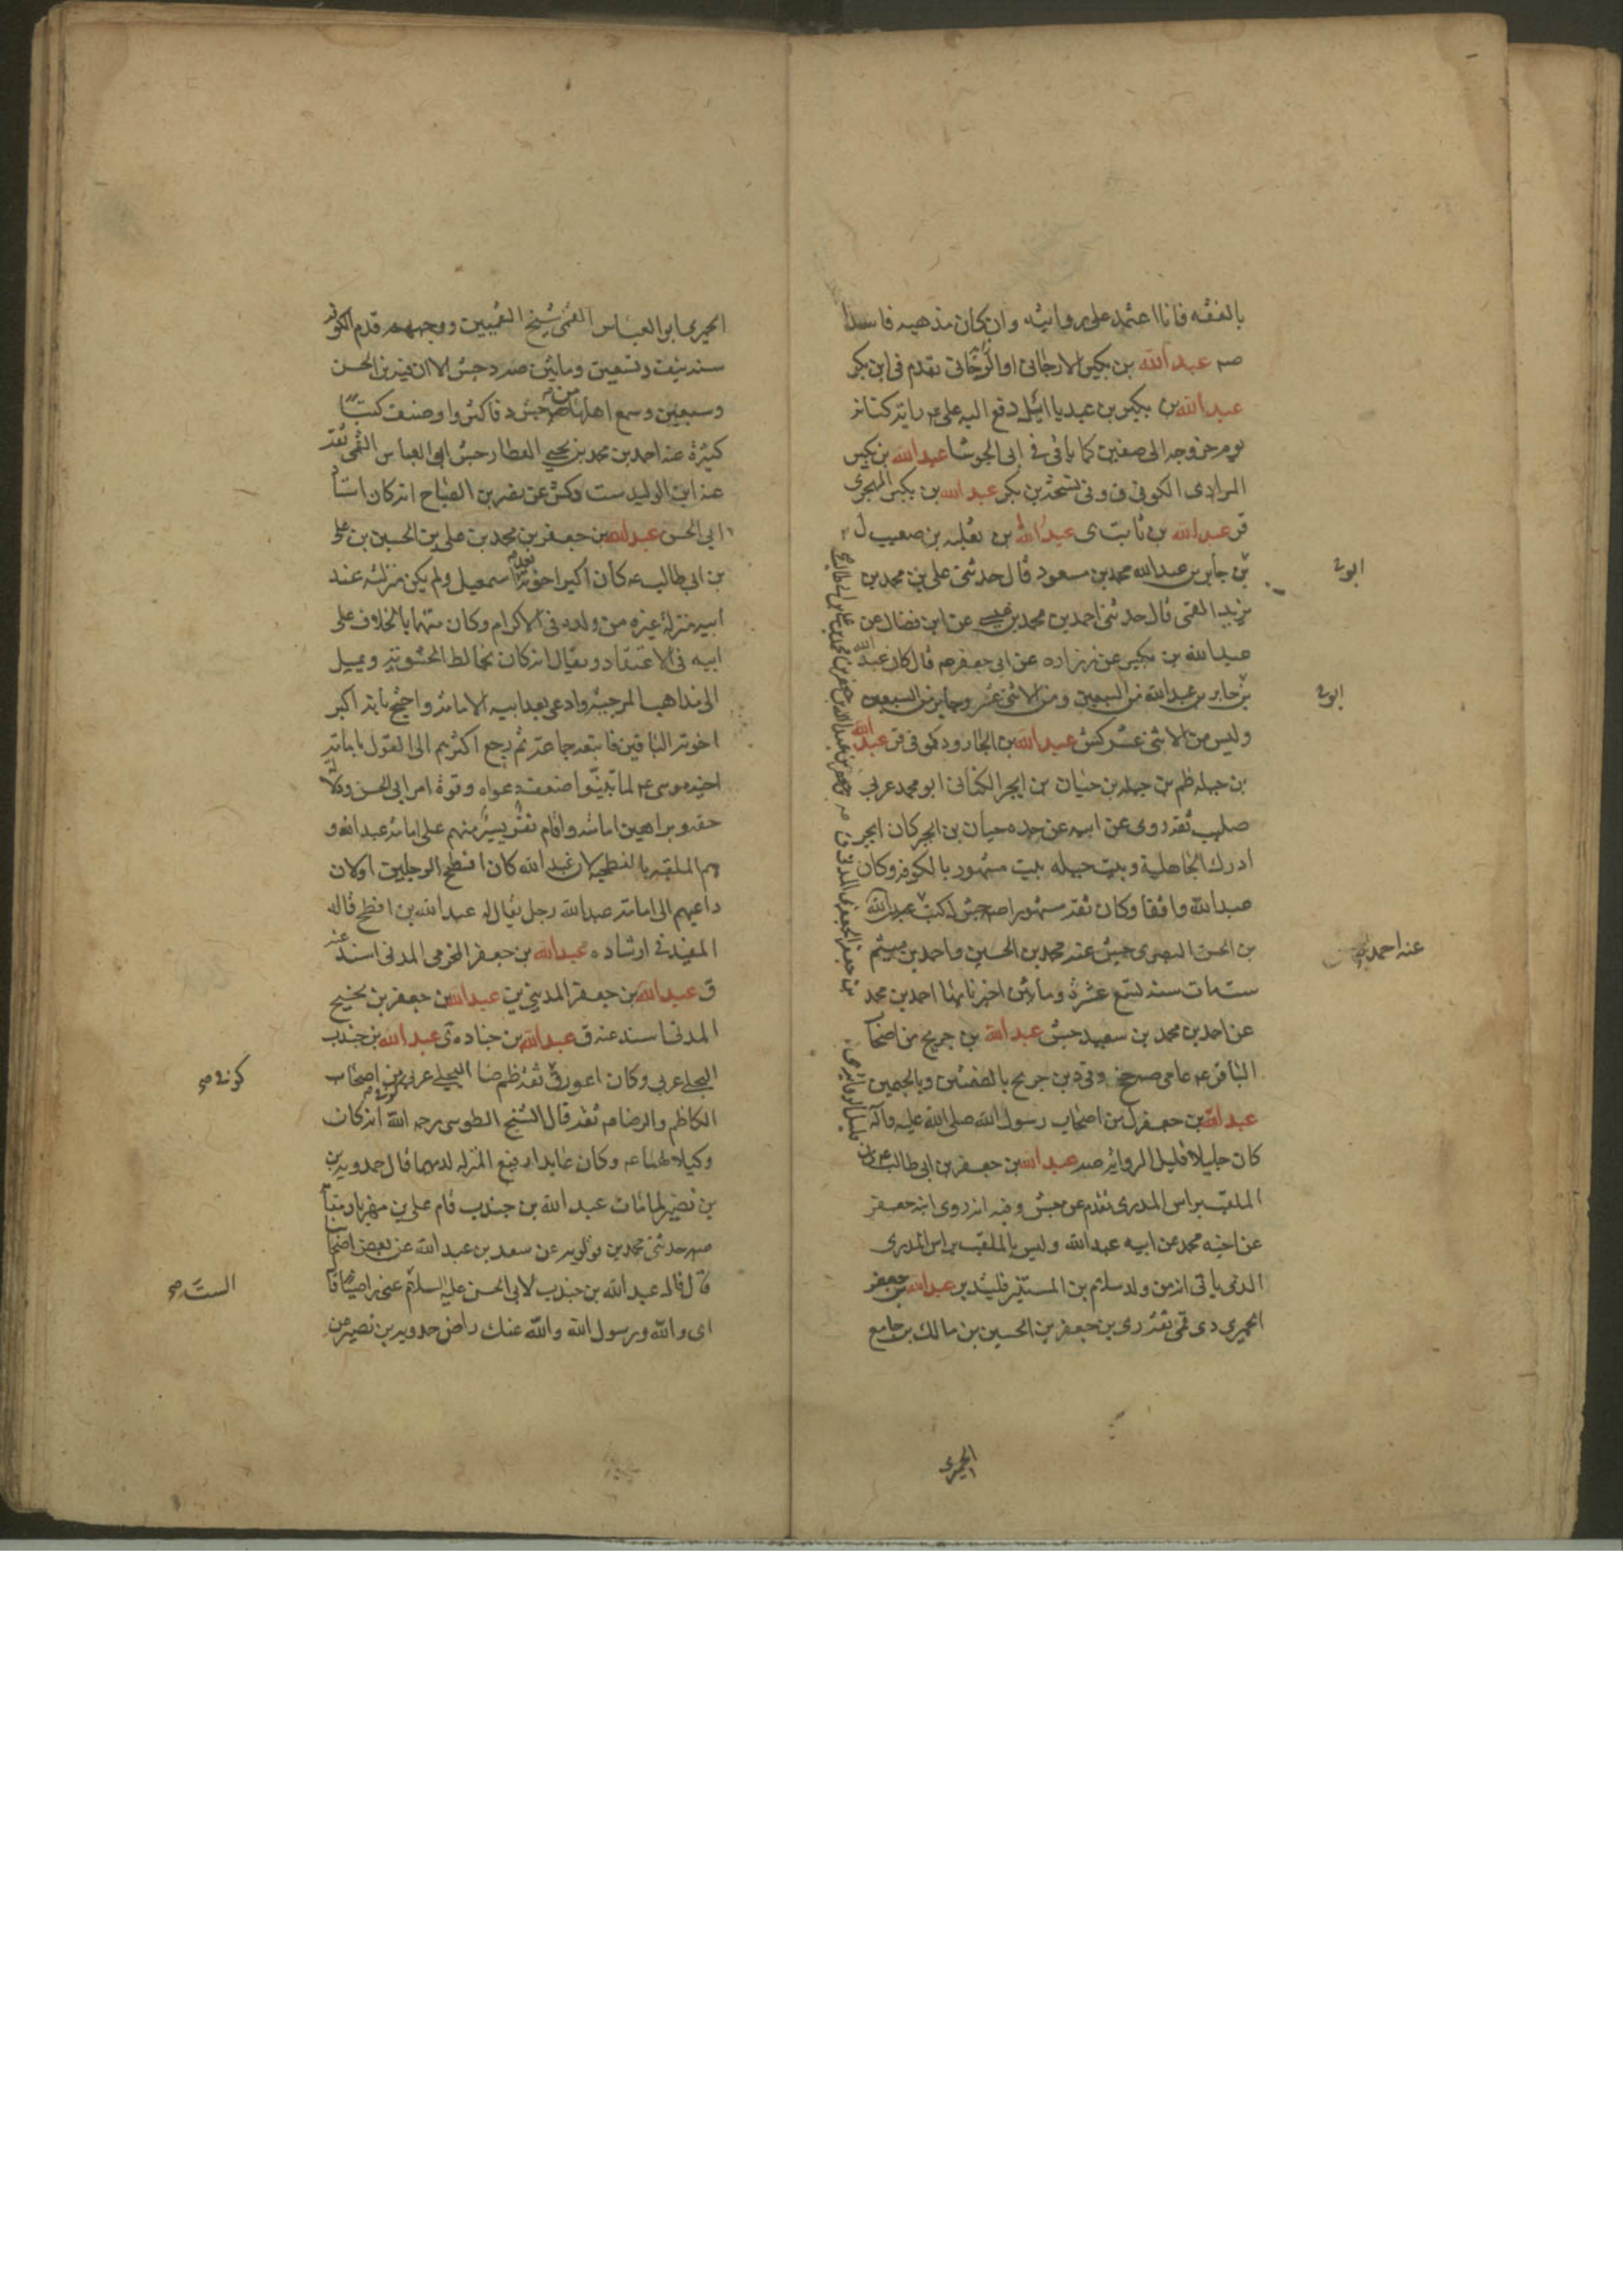 بالفقه فانا اعتمد على روايته وان كان مذهبه فاسدا
صه عبد الله بن بكير الارجانى او الرجانى تقدم فى ابن بكر
عبد الله بن بكير بن عبد ياليل دفع اليه على ع راية كنانة
يوم خروجه الى صفين كما ياتى فى ابى الجوشا عبد الله بن بكير
المرادى الكوفى ق وفى نسخة بن بكر عبد الله بن بكير الهجرى
قر عبد الله بن ثابت ى عبد الله بن ثعلبة بن صعيب ل
بن جابر بن عبد الله محمد بن مسعود قال حدثنى على بن محمد بن
يزيد القمى قال حدثنى احمد بن محمد بن عيسى عن ابن فضال عن
عبد الله بن بكير عن زرارة عن ابى جعفر ع قال كان عبد الله
بن جابر بن عبد الله من السبعين ومن الاثنى عشر وجابر من السبعين
وليس من الاثنى عشر كش عبد الله بن الجارود كوفى قر عبد الله
بن جبلة ظم بن جبلة بن حنان بن ابجر الكنانى ابو محمد عربى
صليب ثقة روى عن ابيه عن جده حيان بن ابجر كان ابجر
ادرك الجاهلية وبيت جبلة بيت مشهور بالكوفة وكان
عبد الله واقفا وكان ثقة مشهورا صه جش له كتب عبد الله
بن الحسن البصرى جش عنه محمد بن الحسين واحمد بن ميثم
ست مات سنة تسع عشرة ومأتين اخبرنا بها احمد بن محمد
عن احمد بن محمد بن سعيد جش عبد الله بن جريح من اصحا
الباقر ع عامى صه جخ وفى د بن جريح بالضمتين وبالجيمين
عبد الله بن جعفر ل من اصحاب رسول الله صلى الله عليه وآله
كان جليلا قليل الرواية صه عبد الله بن جعفر بن ابى طالب
الملقب براس المدرى تقدم عن جش وفيه انه روى ابنه جعفر
عن اخيه محمد عن ابيه عبد الله وليس بالملقب براس المدرى
الذى ياتى انه من ولد سلام بن المستنير فليتدبر عبد الله بن جعفر
الحميرى دى قمى ثقة رى بن جعفر بن الحسين بن مالك بن جامع
ابو
ابو
عنه احمد
الحميرى
الحميرى ابو العباس القمى شيخ القميين ووجههم قدم الكوفة
سنة نيف وتسعين ومأتين صه د جش الا ان فيه بن الحسن
وسبعين وسمع اهلها منه جش د فاكثروا وصنف كتبا
كثيرة عنه احمد بن محمد بن يحيى العطار جش ابى العباس القمى ثقة
عنه ابن الوليد ست وكش عن نصر بن الصباح انه كان استاد
ابى الحسن عبد الله بن جعفر بن محمد بن على بن الحسين بن على
بن ابى طالب ع كان اكبر اخوته بعد اسمعيل ولم يكن منزلته عند
ابيه منزلة غيره من ولده فى الاكرام وكان متهما بالخلاف على
ابيه فى الاعتقاد ويقال انه كان يخالط الحشوية ويميل
الى مذاهب المرجئة وادعى بعد ابيه الامامة واحتج بانه اكبر
اخوته الباقين فاتبعه جماعة ثم رجع اكثرهم الى القول بامامة
اخيه موسى ع لما تبينوا ضعف دعواه وقوة امر ابى الحسن ودلالة
حقه وبراهين امامته واقام نفر يسير منهم على امامة عبد الله و
هم الملقبة بالفطحية لان عبد الله كان افطح الرجلين او لان
داعيهم الى امامة عبد الله رجل يقال له عبد الله بن افطح قاله
المفيد فى ارشاده عبد الله بن جعفر المخرمى المدنى اسند عنه
ق عبد الله بن جعفر المدينى ين عبد الله بن جعفر بن نجيح
المدنى اسند عنه ق عبد الله بن جنادة ى عبد الله بن جندب
البجلى عربى وكان اعور ق ثقة ظم ضا البجلى عربى من اصحاب
الكاظم والرضا ع ثقة قال الشيخ الطوسى رحمه الله انه كان
وكيلا لهما ع وكان عابدا رفيع المنزلة لديهما قال حمدويه بن
بن نصير لما مات عبد الله بن جندب قام على بن مهزيار مقامه
صه حدثنى محمد بن قولويه عن سعد بن عبد الله عن بعض اصحابنا
قال قال عبد الله بن جندب لابى الحسن عليه السلام عنى راضيا قا
اى والله ورسول الله والله عنك راض حمدويه بن نصير عن
كوفى صح
الست صح